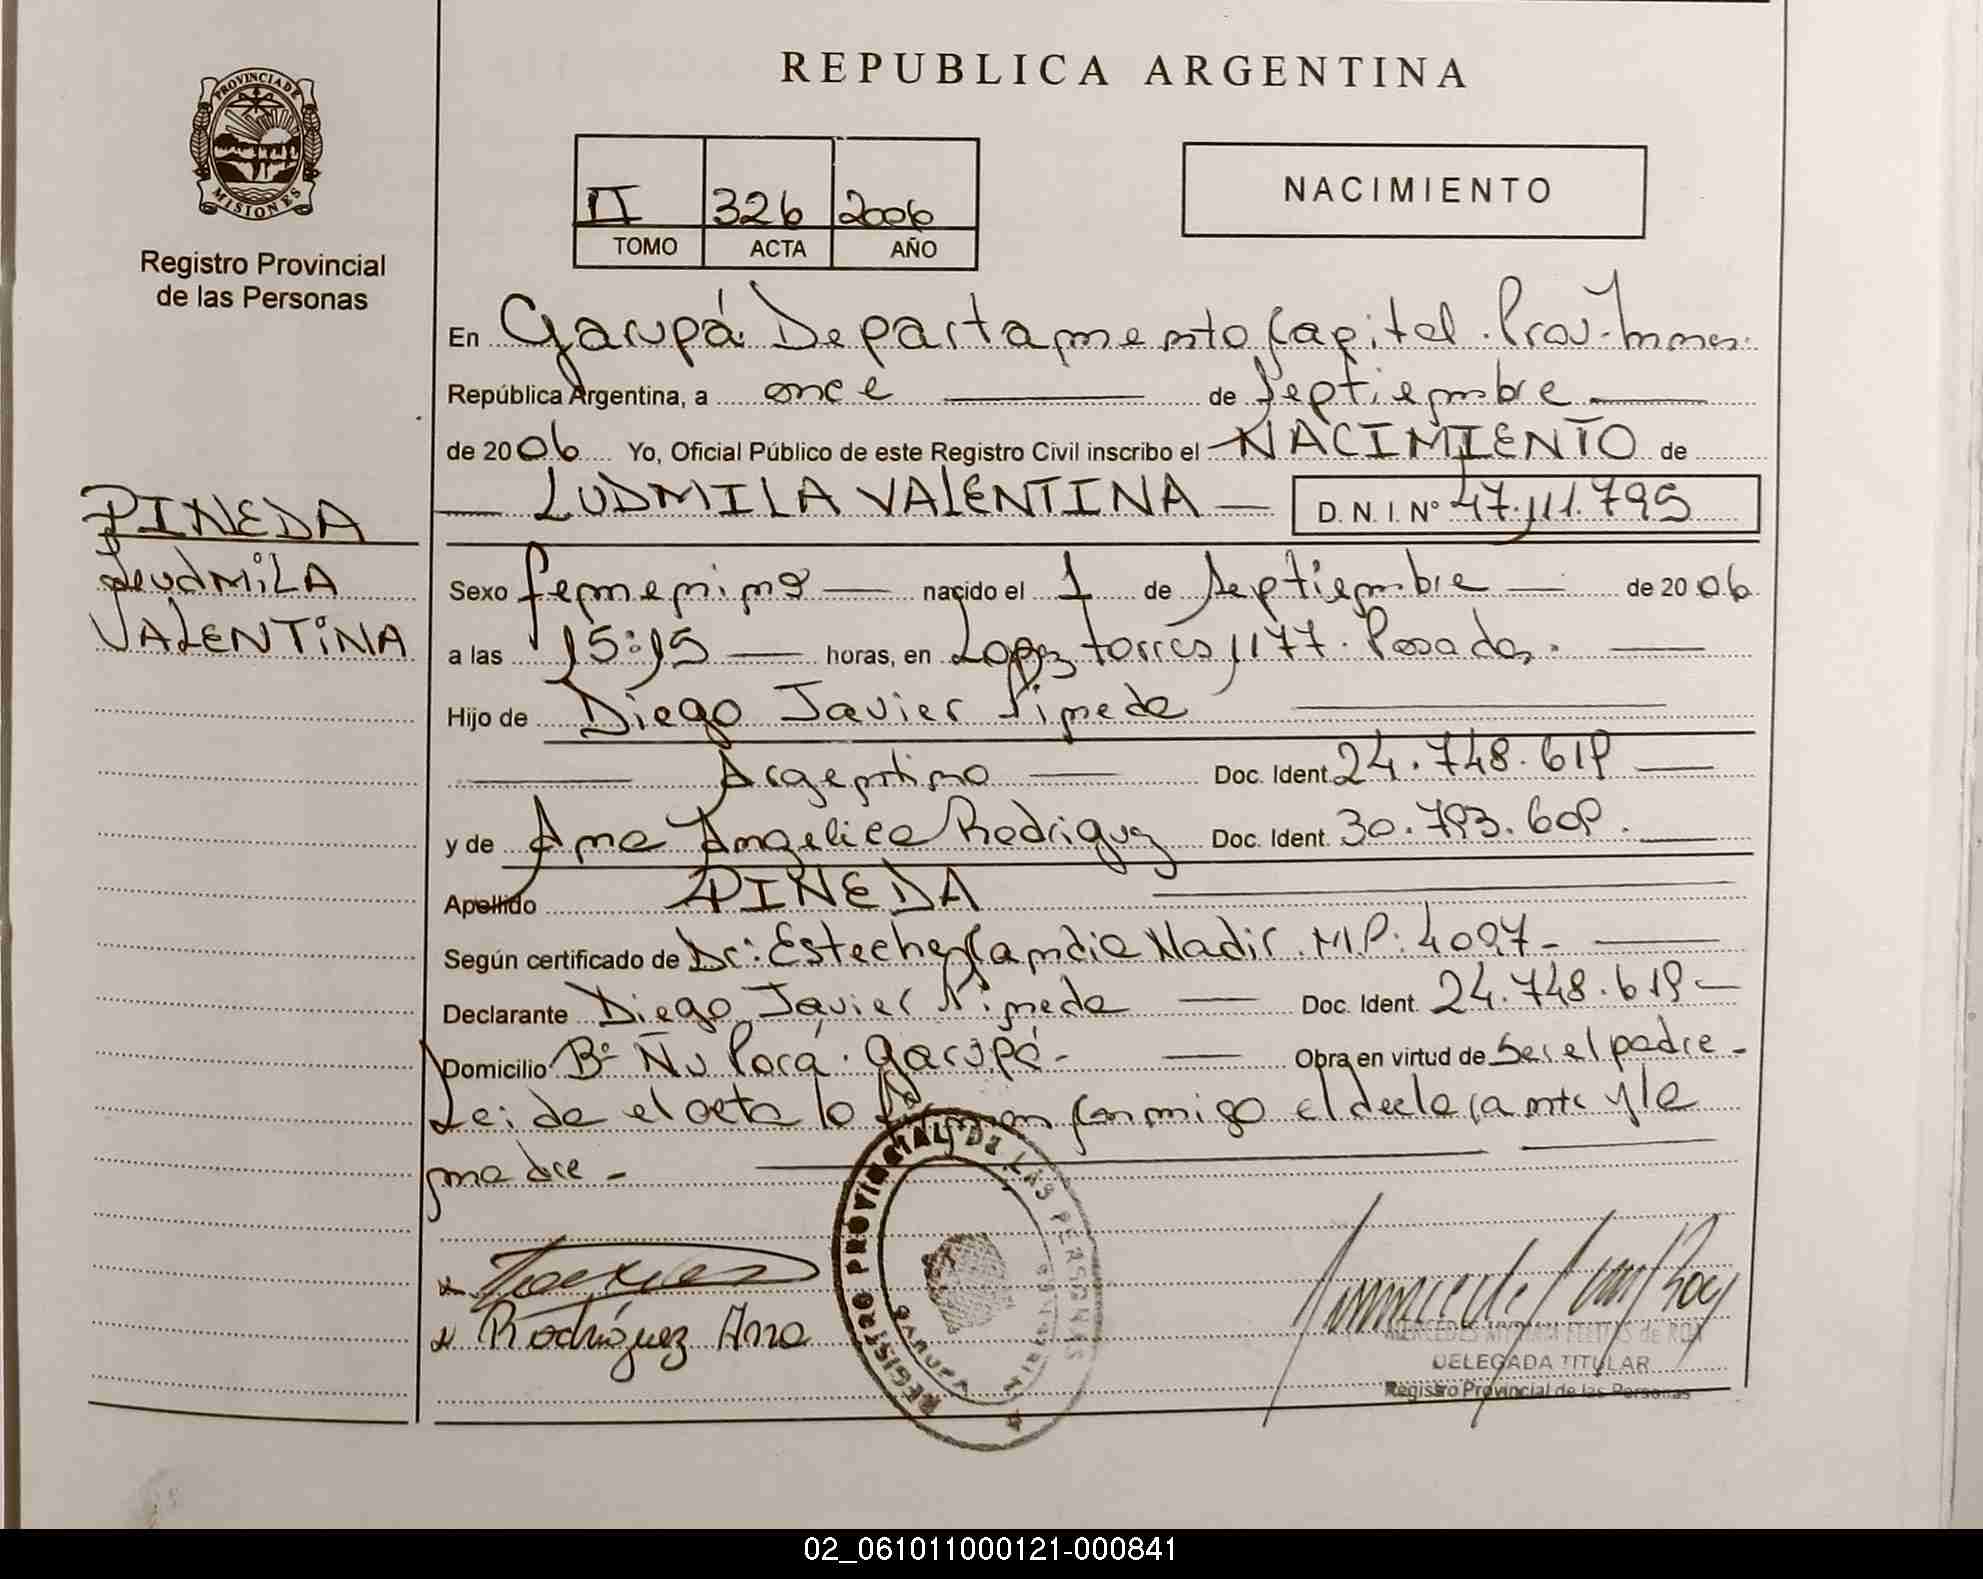 REPUBLICA ARGENTINA
PROVINCIA DE MISIONES
Registro Provincial
de las Personas
II 326 2006
TOMO ACTA AÑO
NACIMIENTO
En Garupá. Departamento Capital. Prov.
República Argentina, a once de Septiembre
de 2006 Yo, Oficial Público de este Registro Civil inscribo el NACIMIENTO de
LUDMILA VALENTINA D. N. I. Nº 47.111.795
PINEDA
LUDMILA
VALENTINA
Sexo femenino nacido el 1 de Septiembre de 2006
a las 15:15 horas, en Lopez torres 1177. Posadas.
Hijo de Diego Javier Pineda
Argentino Doc. Ident. 24.748.619
y de Ana Angelica Rodriguez Doc. Ident. 30.793.609.
Apellido PINEDA
Según certificado de Dr: Esteche Candia Nadir. M.P: 4097-
Declarante Diego Javier Pineda Doc. Ident. 24.748.619-
Domicilio Bº Ñu Porá. Garupá- Obra en virtud de Ser el padre-
Leida el acta lo firman conmigo el declarante y la
madre-
REGISTRO PROVINCIAL DE LAS PERSONAS
Rodríguez Ana
DELEGADA TITULAR
Registro Provincial de las Personas
02_061011000121-000841